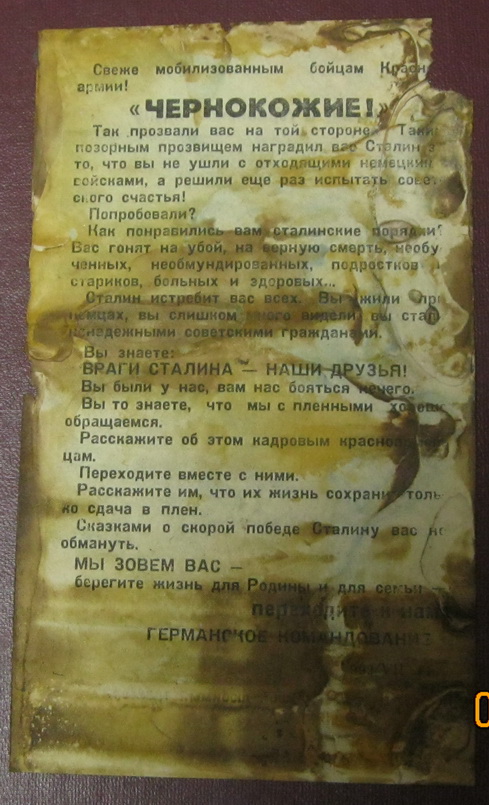 Свеже мобилизованным бойцам Красн
армии!
«ЧЕРНОКОЖИЕ!»
Так прозвали вас на той стороне. Таки
позорным прозвищем наградил вас Сталин з
то, что вы не ушли с отходящими немецкими
войсками, а решили еще раз испытать совет
ского счастья!
Попробовали?
Как понравились вам сталинские порядки?
Вас гонят на убой, на верную смерть, необу
ченных, необмундированных, подростков и
стариков, больных и здоровых...
Сталин истребит вас всех. Вы жили при
немцах, вы слишком много видели, вы стали
ненадежными советскими гражданами.
Вы знаете:
ВРАГИ СТАЛИНА — НАШИ ДРУЗЬЯ!
Вы были у нас, вам нас бояться нечего.
Вы то знаете, что мы с пленными хорошо
обращаемся.
Расскажите об этом кадровым красноармей
цам.
Переходите вместе с ними.
Расскажите им, что их жизнь сохранит толь
ко сдача в плен.
Сказками о скорой победе Сталину вас не
обмануть.
МЫ ЗОВЕМ ВАС —
берегите жизнь для Родины и для семьи —
переходите к нам!
ГЕРМАНСКОЕ КОМАНДОВАНИЕ